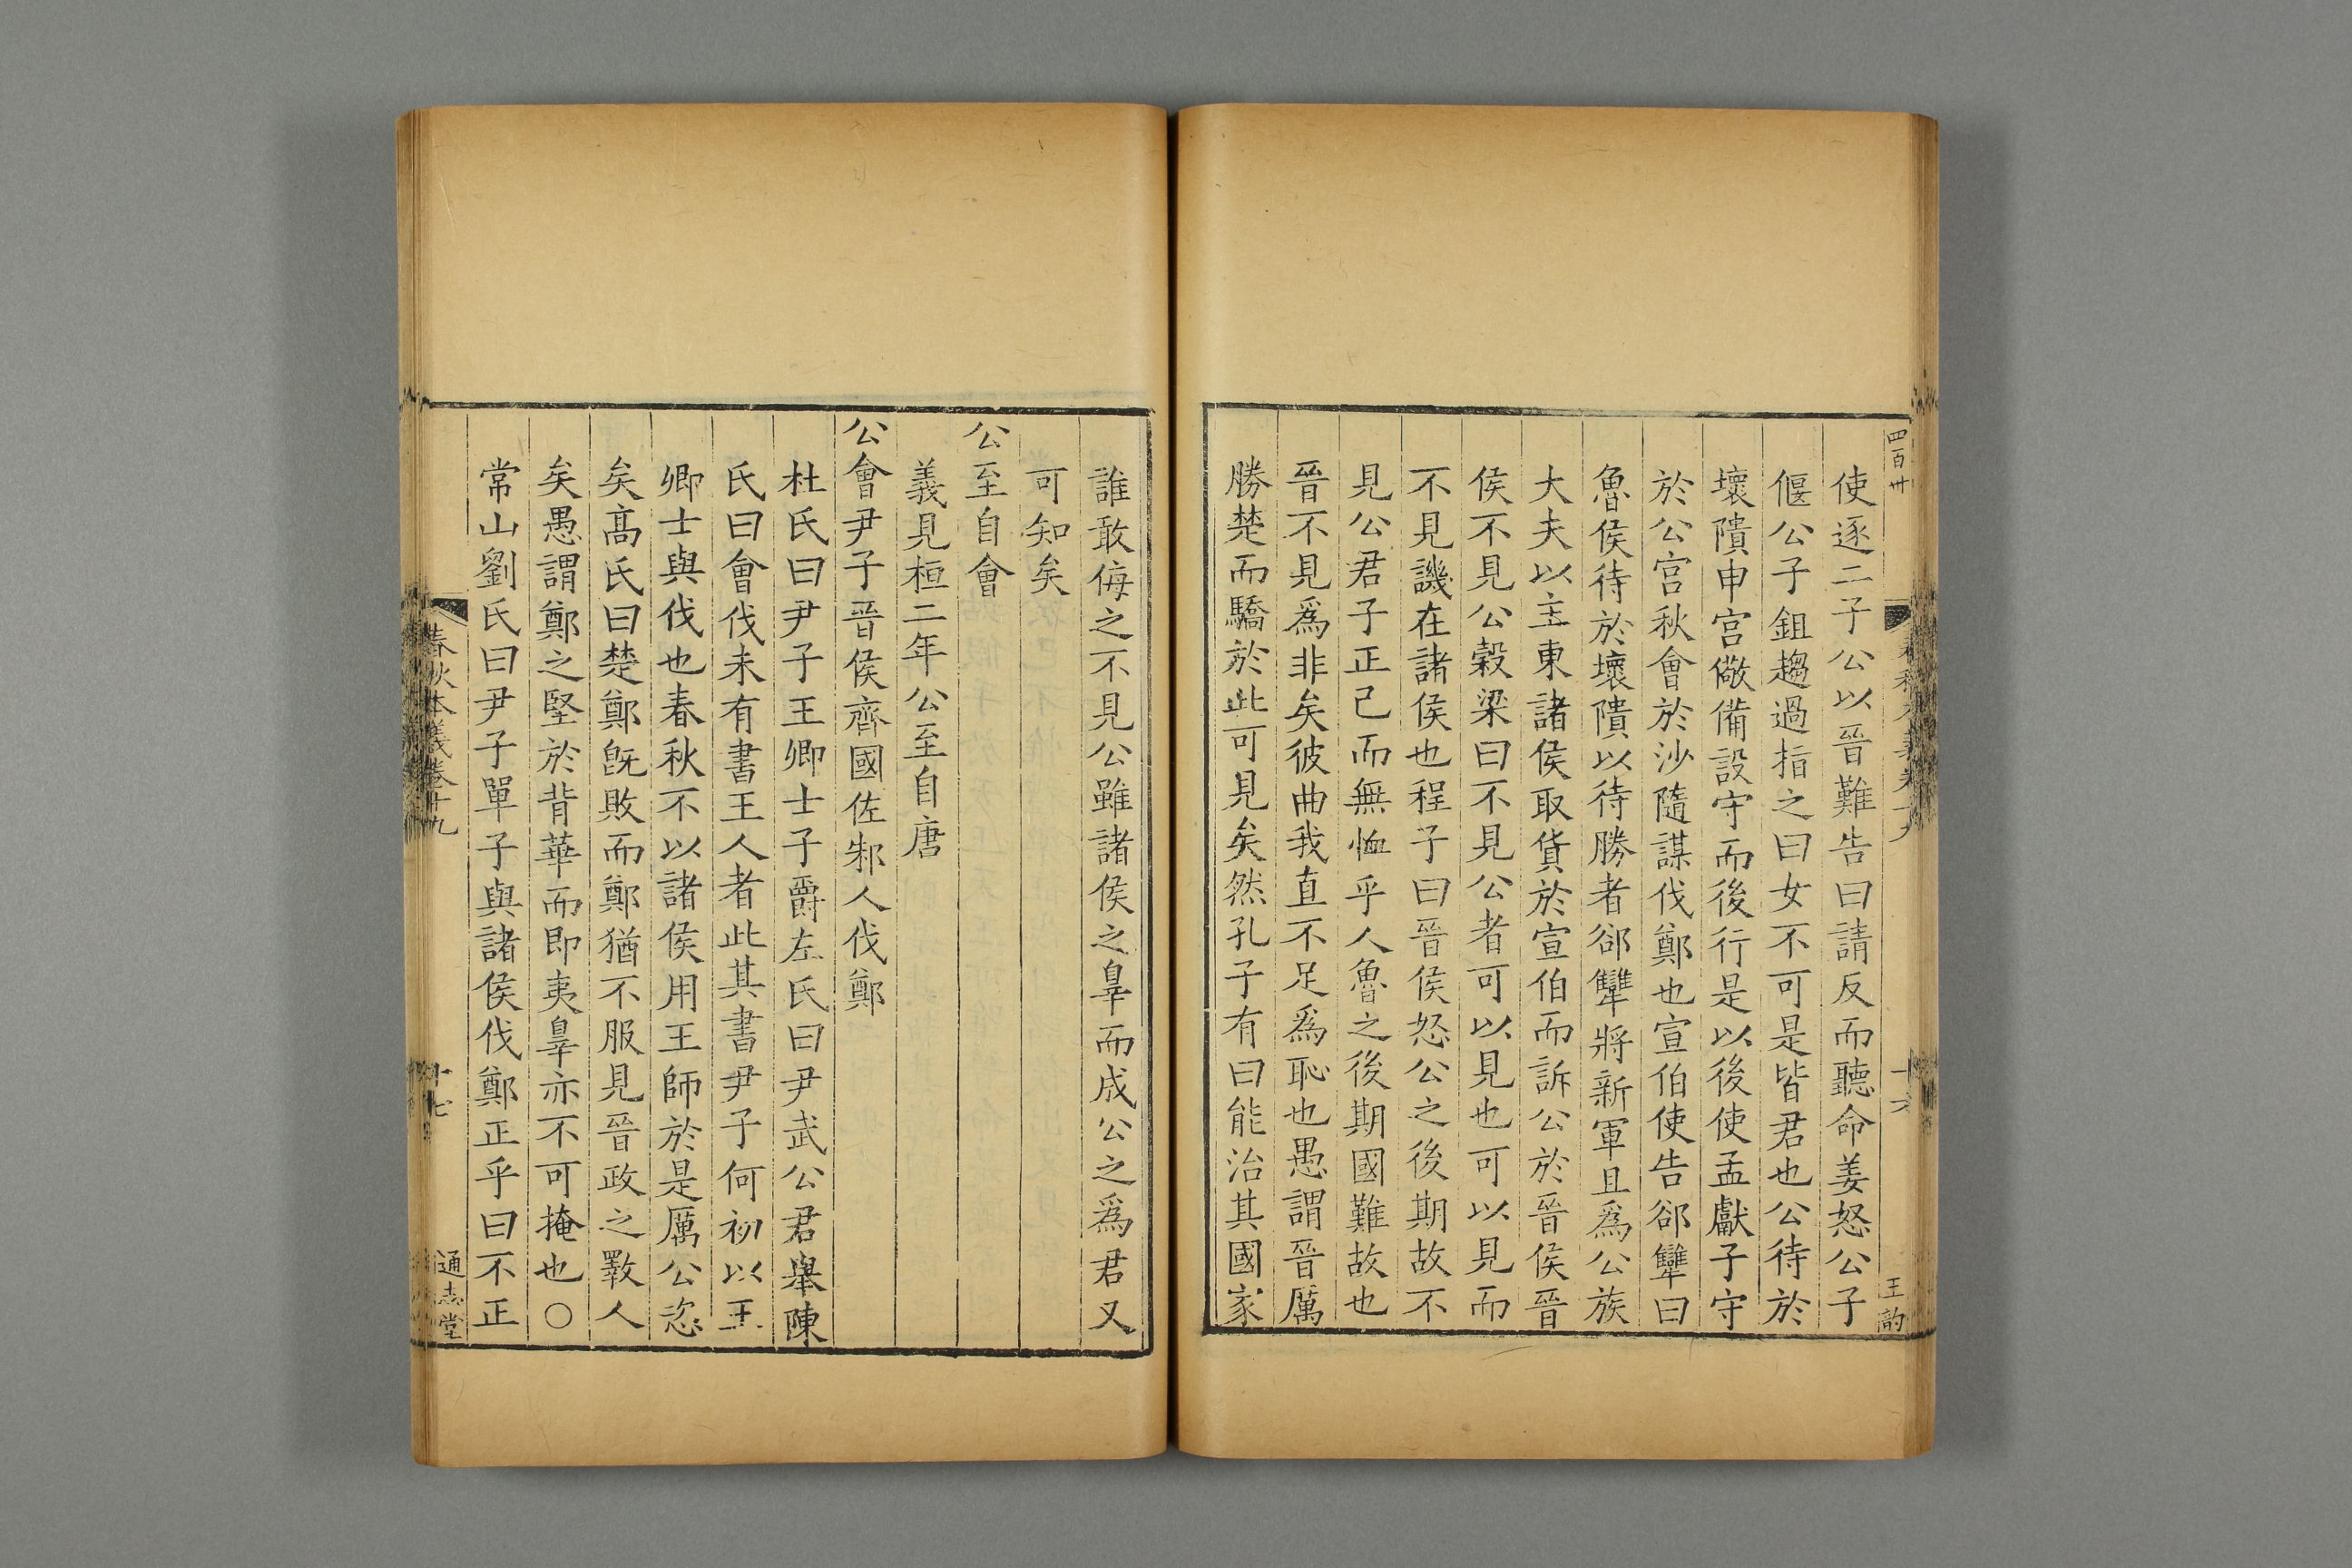 四百卅
使逐二子公以晉難告曰請反而聽命姜怒公子
偃公子鉏趨過指之曰女不可是皆君也公待於
壞隤申宮儆備設守而後行是以後使孟獻子守
於公宮秋會於沙隨謀伐鄭也宣伯使告郤犨曰
魯侯待於壞隤以待勝者郤犨將新軍且爲公族
大夫以主東諸侯取貨於宣伯而訴公於晉侯晉
侯不見公穀梁曰不見公者可以見也可以見而
不見譏在諸侯也程子曰晉侯怒公之後期故不
見公君子正己而無恤乎人魯之後期國難故也
晉不見爲非矣彼曲我直不足爲恥也愚謂晉厲
勝楚而驕於此可見矣然孔子有曰能治其國家
誰敢侮之不見公雖諸侯之辠而成公之爲君又
可知矣
公至自會
義見桓二年公至自唐
公會尹子晉侯齊國佐邾人伐鄭
杜氏曰尹子王卿士子爵左氏曰尹武公君舉陳
氏曰會伐未有書王人者此其書尹子何初以王
卿士與伐也春秋不以諸侯用王師於是厲公恣
矣高氏曰楚鄭旣敗而鄭猶不服見晉政之斁人
矣愚謂鄭之堅於背華而即夷辠亦不可掩也○
常山劉氏曰尹子單子與諸侯伐鄭正乎曰不正
春秋本義卷十九
十七
通志堂